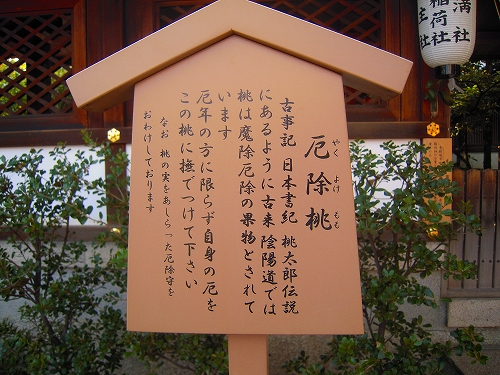 厄除桃
やく よけ もも
古事記 日本書紀 桃太郎伝説
にあるように古来 陰陽道では
桃は魔除厄除の果物とされて
います
厄年の方に限らず自身の厄を
この桃に撫でつけて下さい
なお 桃の実をあしらった厄除守を
おわけしております
満
稲荷社
社